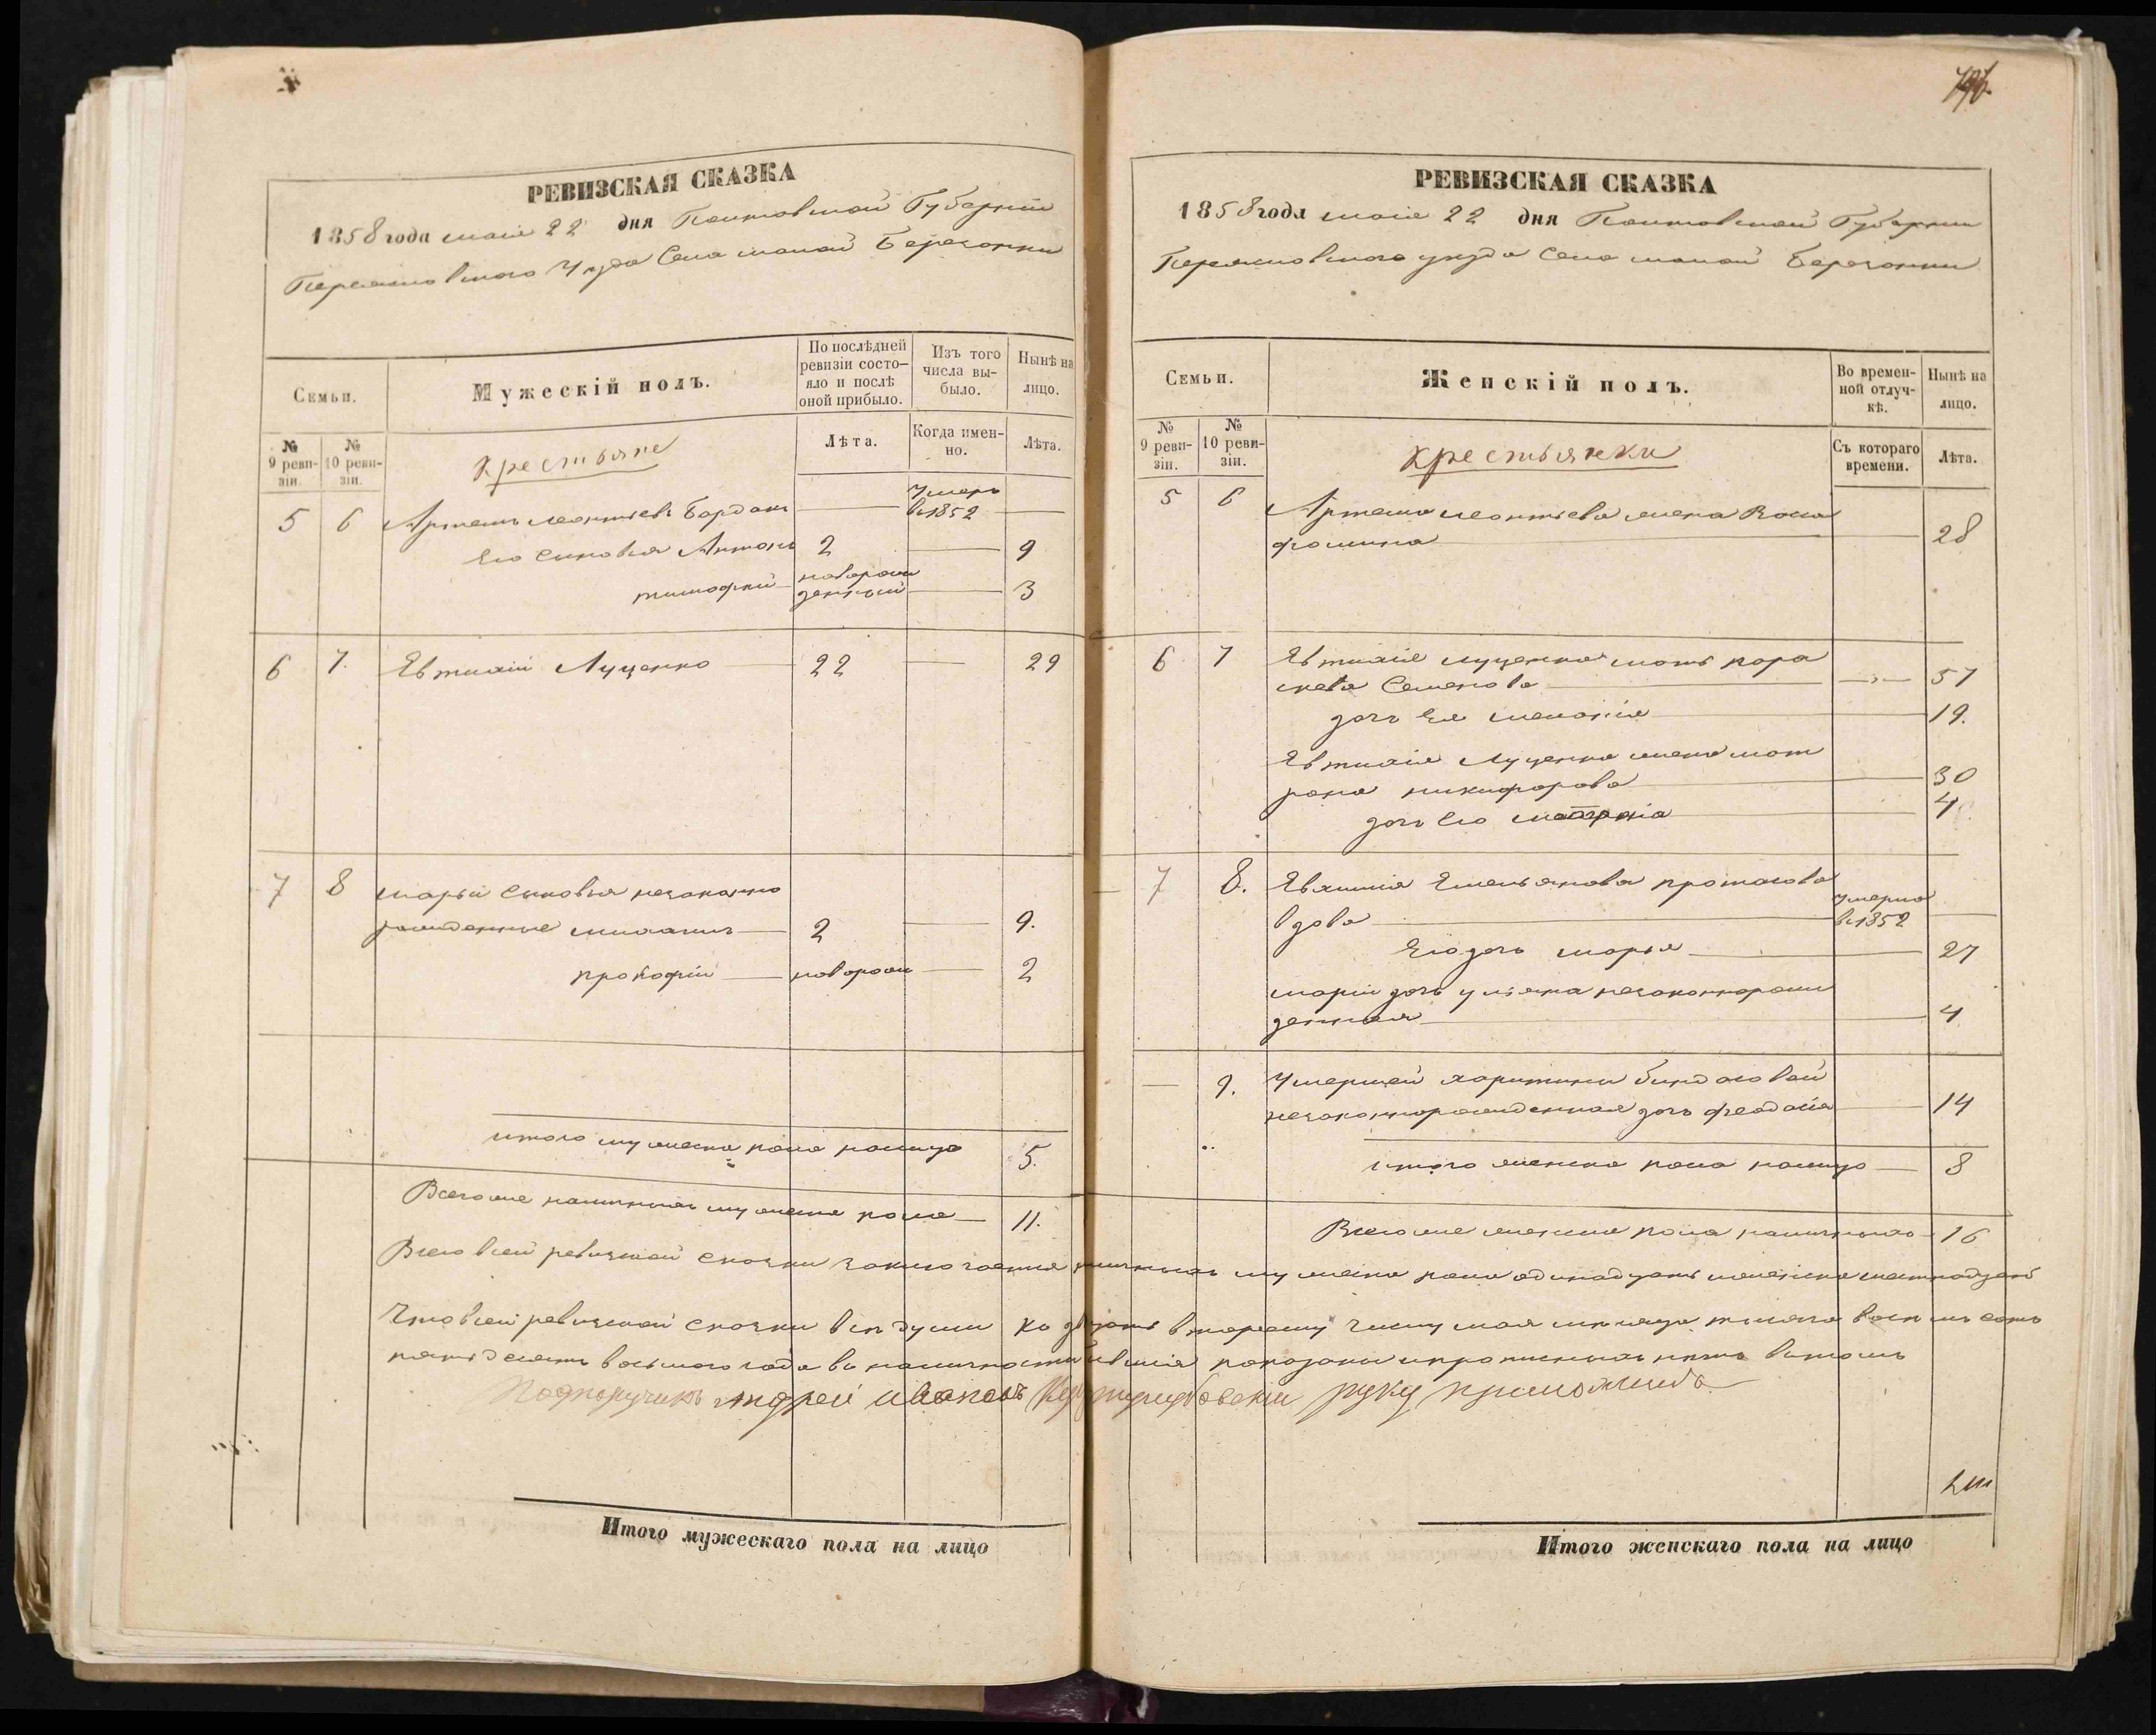 РЕВИЗСКАЯ СКАЗКА
1858 года маія 22 дня Полтовской Губерніи
Переясловского Уезда Села малой Березонки
Семьи.
Мужескій полъ.
По послѣдней ревизіи состо-
яло и послѣ
оной прибыло.
Изъ того
числа вы-
было.
Нынѣ на
лицо.
№
9 реви-
зіи.
№
10 реви-
зіи.
Крестьяне
Лѣта.
Когда имен-
но.
Лѣта.
5 6 Артемъ леонтьевъ Бардакъ
Умеръ
в 1852
Его сыновья Антонъ 2 9
тимофей
новорож
денный 3
6 7. Евтихій Луценко 22 29
7 8 марьи сыновья незаконно
рожденные 2 9.
прокофій новорож 2
итого мужеска пола налицо 5.
Всего же наличныхъ мужеска пола 11.
Итого мужескаго пола на лицо
796.
РЕВИЗСКАЯ СКАЗКА
1858 года маія 22 дня Полтовской Губернии
Переясловского уезда Села малой Березонки
Семьи.
Женскій полъ.
Во времен-
ной отлуч-
кѣ.
Нынѣ на
лицо.
№
9 реви-
зіи.
№
10 реви-
зіи.
Крестьянки
Съ котораго
времени.
Лѣта.
5 6 Артема леонтьева жена
фомина 28
6 7 Евтихія луценка мать пара
скева Семенова 57
дочь Ея меланія 19.
Евтихія Луценка жена мот
рона никифорова 30
дочь Его 4
7 8. Евхимія Емельянова
вдова
Умерла
в 1852
Его дочь марья 27
маріи дочь ульяна незаконнорож
денная 4
9. Умершей харитины
незаконнорожденная дочь феодосія 14
итого женска пола налицо 8
Всего же женска пола наличныхъ 16
Всего в сей ревизской сказки заключается наличныхъ мужеска пола одинадцать женска шестнадцать
Что в сей ревизской сказки все души ко двадцать второму числу мая месяца тысяча восемъ сотъ
пятьдесятъ восьмого года в наличности бывшія показаны и прописныхъ нетъ в томъ
Подпоручикъ Андрей Ивановъ руку приложилъ
Итого женскаго пола на лицо